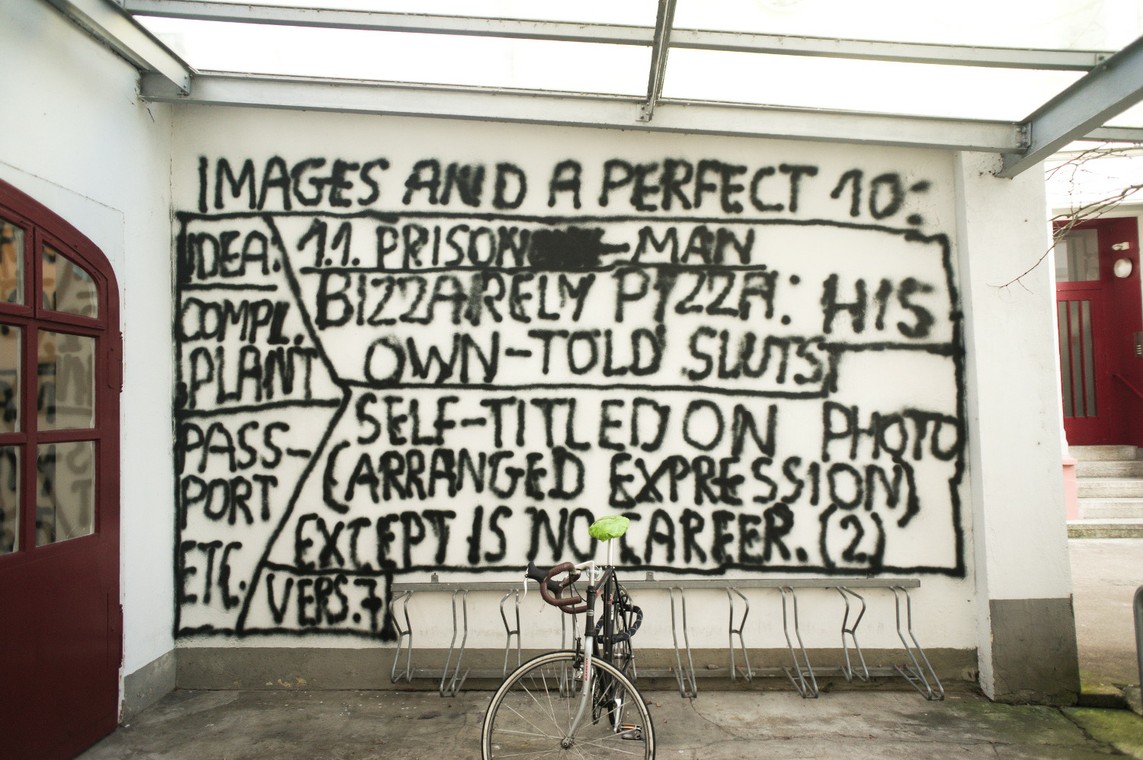 IMAGES AND A PERFECT 10:
IDEA:
COMPL.
PLANT
PASS-
PORT
ETC.
1.1. PRISON -MAN
BIZZARELY PIZZA: HIS
OWN-TOLD SLUTS
SELF-TITLED ON PHOTO
(ARRANGED EXPRESSION)
EXCEPT IS NO CAREER. (2)
VERS.7